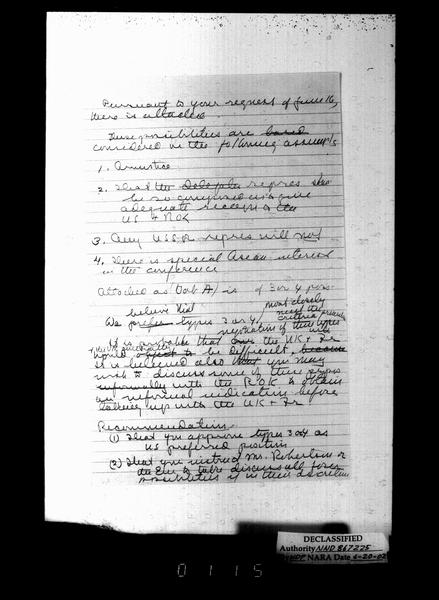 Pursuant to your request of June 16,
there is attached
These possibilities are based
considered in the following
1. Armistice
2. That the repres
be so composed as give
adequate recogn to the
US + ROK
3. Any USSR repres will not
4. There is special Asean interest
in the conference
Attached as (Tab A) is of 3 or 4 poss
believe that most closely
We prefer types 3 or 4, meet the
criteria
negotiation of these types
It is probable that the UK + Fr with
would object to be difficult, because
It is believed also that you may
wish to discuss some of these
informally with the ROK to obtain
an informal indication before
taking up with the UK + Fr
Recommendation
(1) That you approve types 3 or 4 as
US preferred position
(2) That you instruct Mr. Robertson or
to take discuss all four
possibilities in their discretion
DECLASSIFIED
Authority NND 867225
By NARA Date 6-20-02
0115